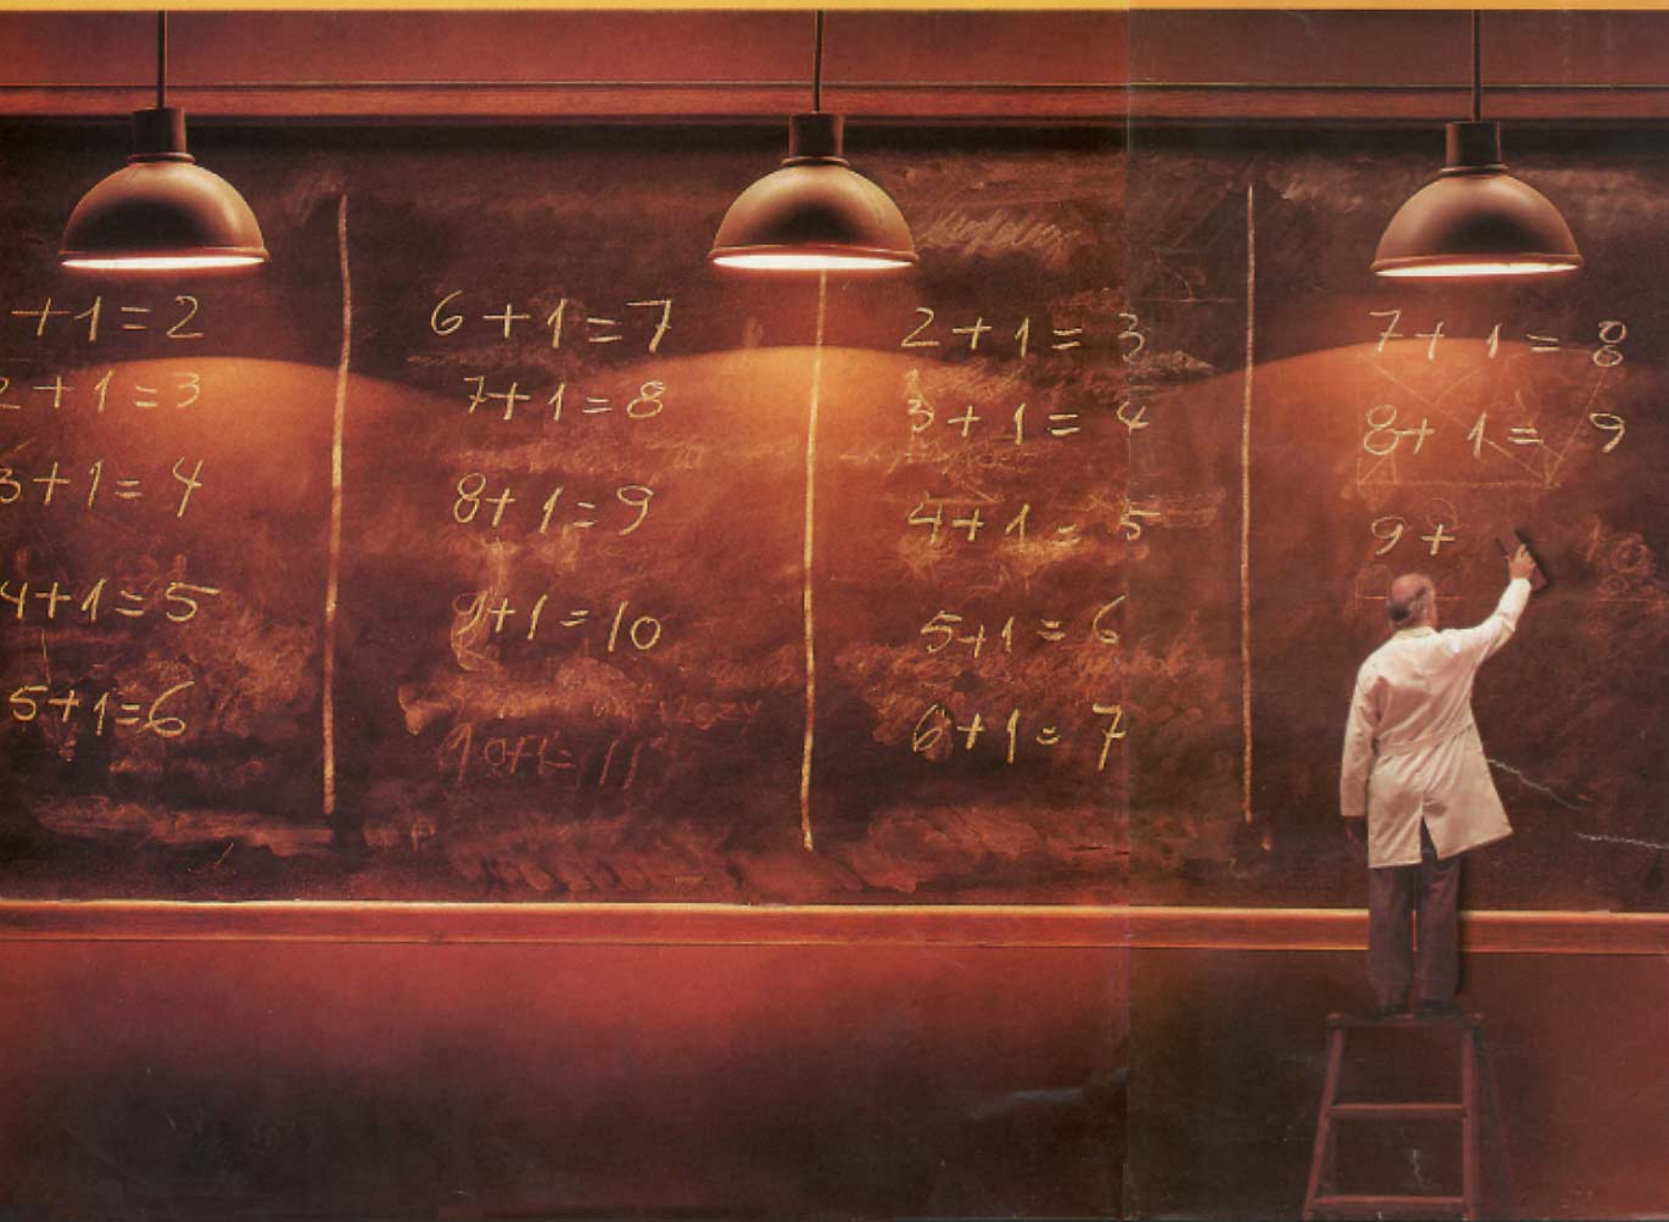 +1=2
2+1=3
3+1=4
4+1=5
5+1=6
6+1=7
7+1=8
8+1=9
9+1=10
10+1=11
2+1=3
3+1=4
4+1=5
5+1=6
6+1=7
7+1=8
8+1=9
9+